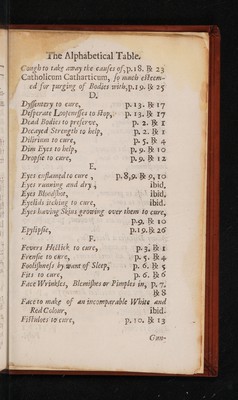 The Alphabetical Table.
Cough to take away the causes of, p. 18. ℞ 23
Catholicum Catharticum, so much esteem-
ed for purging of Bodies with, p. 19. ℞ 25
D.
Dyssentery to cure, p. 13. ℞ 17
Desperate Loosenesses to stop, p. 13. ℞ 17
Dead Bodies to preserve, p. 2. ℞ 1
Decayed Strength to help, p. 2. ℞ 1
Dilirium to cure, p. 5. ℞ 4
Dim Eyes to help, p. 9. ℞ 10
Dropsie to cure, p. 9. ℞ 12
E.
Eyes enflamed to cure, p. 8,9. ℞ 9, 10
Eyes running and dry, ibid.
Eyes Bloodshot, ibid.
Eyelids itching to cure, ibid.
Eyes having Skins growing over them to cure,
p. 9. ℞ 10
Epylipsie, p. 19. ℞ 26
F.
Fevers Hectick to cure, p. 3, ℞ 1
Frensie to cure, p. 5. ℞ 4
Foolishness by want of Sleep, p. 6. ℞ 5
Fits to cure, p. 6. ℞ 6
Face Wrinkles, Blemishes or Pimples in, p. 7,
℞ 8
Face to make of an incomparable White and
Red Colour, ibid.
Fistuloes to cure, p. 10. ℞ 13
Gun-